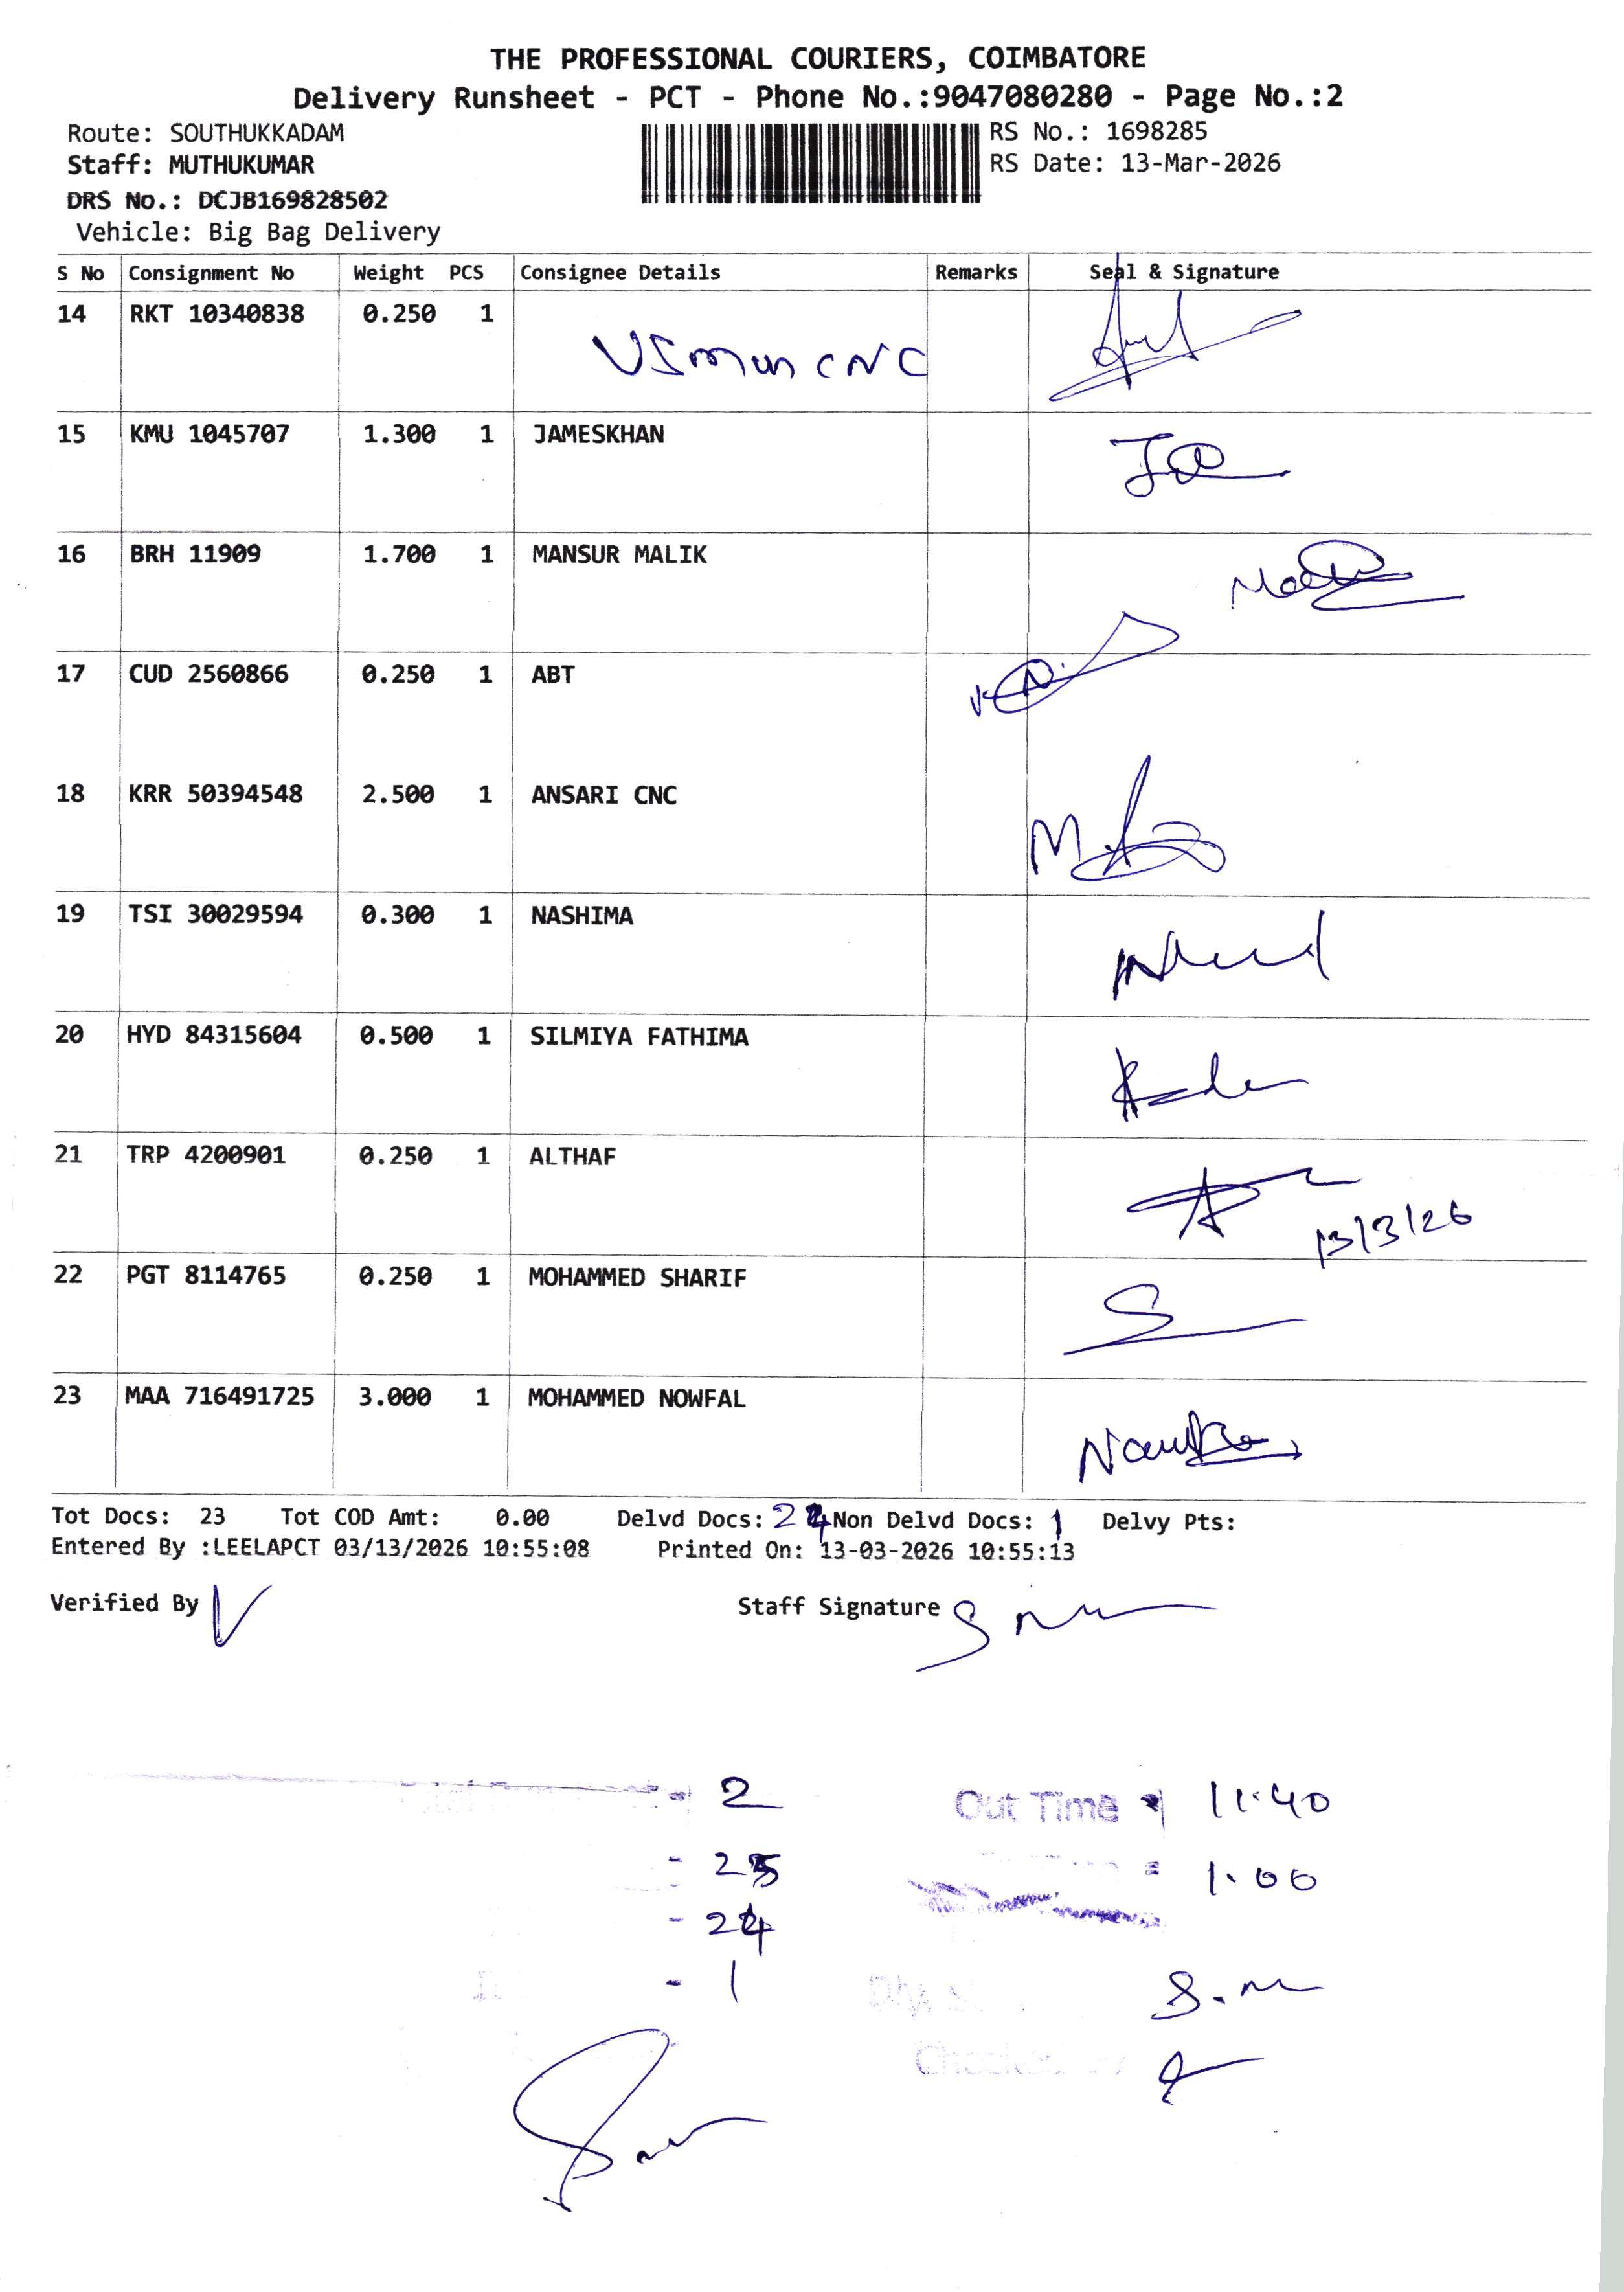 THE PROFESSIONAL COURIERS, COIMBATORE
Delivery Runsheet - PCT - Phone No.:9047080280 - Page No.:2
Route: SOUTHUKKADAM
RS No.: 1698285
Staff: MUTHUKUMAR
RS Date: 13-Mar-2026
DRS No.: DCJB169828502
Vehicle: Big Bag Delivery
S No Consignment No Weight PCS Consignee Details Remarks Seal & Signature
14 RKT 10340838 0.250 1
CNC
15 KMU 1045707 1.300 1 JAMESKHAN
16 BRH 11909 1.700 1 MANSUR MALIK
17 CUD 2560866 0.250 1 ABT
18 KRR 50394548 2.500 1 ANSARI CNC
19 TSI 30029594 0.300 1 NASHIMA
20 HYD 84315604 0.500 1 SILMIYA FATHIMA
21 TRP 4200901 0.250 1 ALTHAF
13/3/26
22 PGT 8114765 0.250 1 MOHAMMED SHARIF
23 MAA 716491725 3.000 1 MOHAMMED NOWFAL
Tot Docs: 23 Tot COD Amt: 0.00 Delvd Docs: 24 Non Delvd Docs: 1 Delvy Pts:
Entered By :LEELAPCT 03/13/2026 10:55:08 Printed On: 13-03-2026 10:55:13
Verified By Staff Signature
2 Out Time 11.40
- 25 = 1.00
- 24
- 1